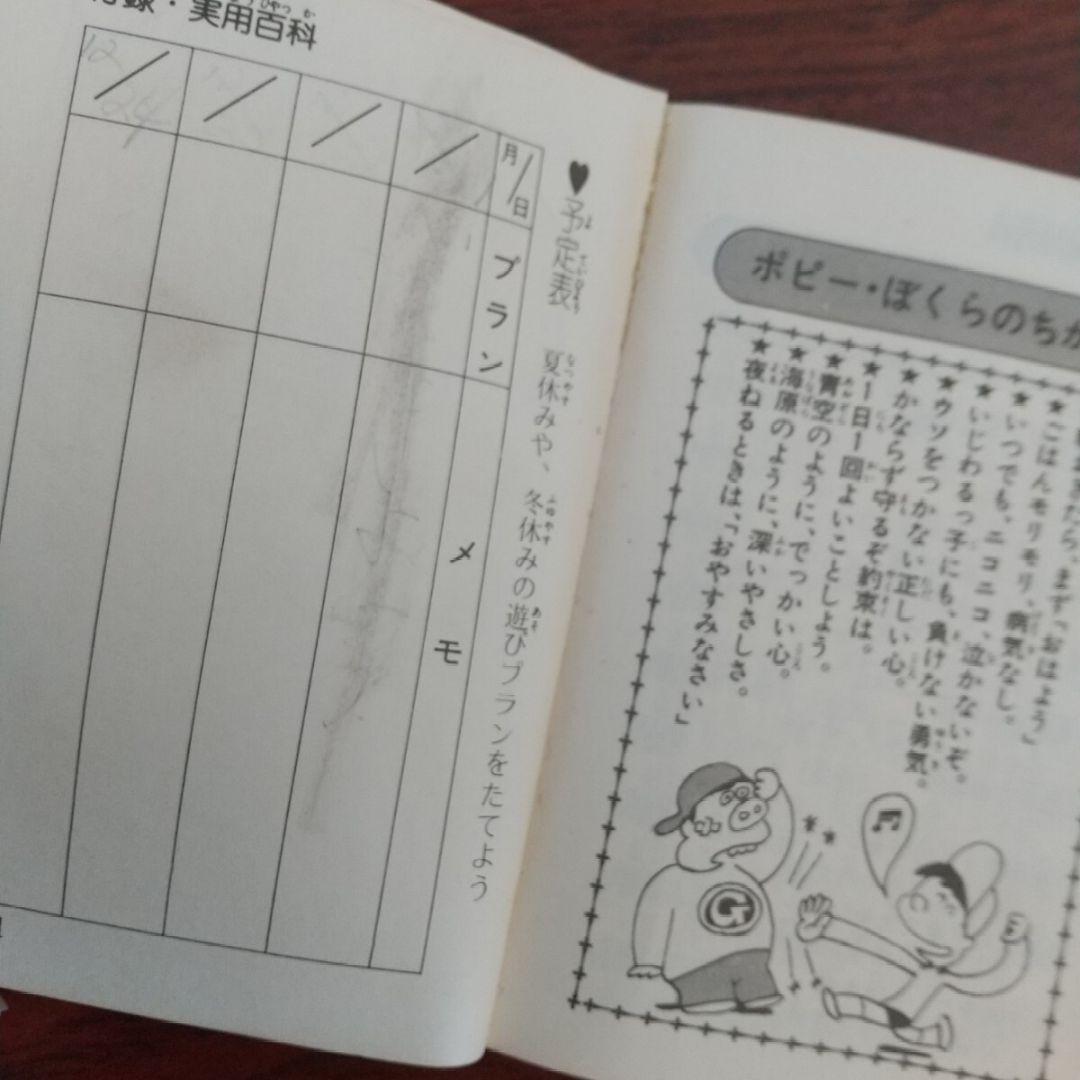 付録・実用百科
♥予定表 夏休みや、冬休みの遊びプランをたてよう
月/日
プラン
メモ
12/24
ポピー・ぼくらのちか
まず「おはよう」
★ごはんモリモリ、病気なし。
★いつでも、ニコニコ、泣かないぞ。
★いじわるっ子にも、負けない勇気。
★ウソをつかない正しい心。
★かならず守るぞ約束は。
★1日1回よいことしよう。
★青空のように、でっかい心。
★海原のように、深いやさしさ。
★夜ねるときは、「おやすみなさい」
G